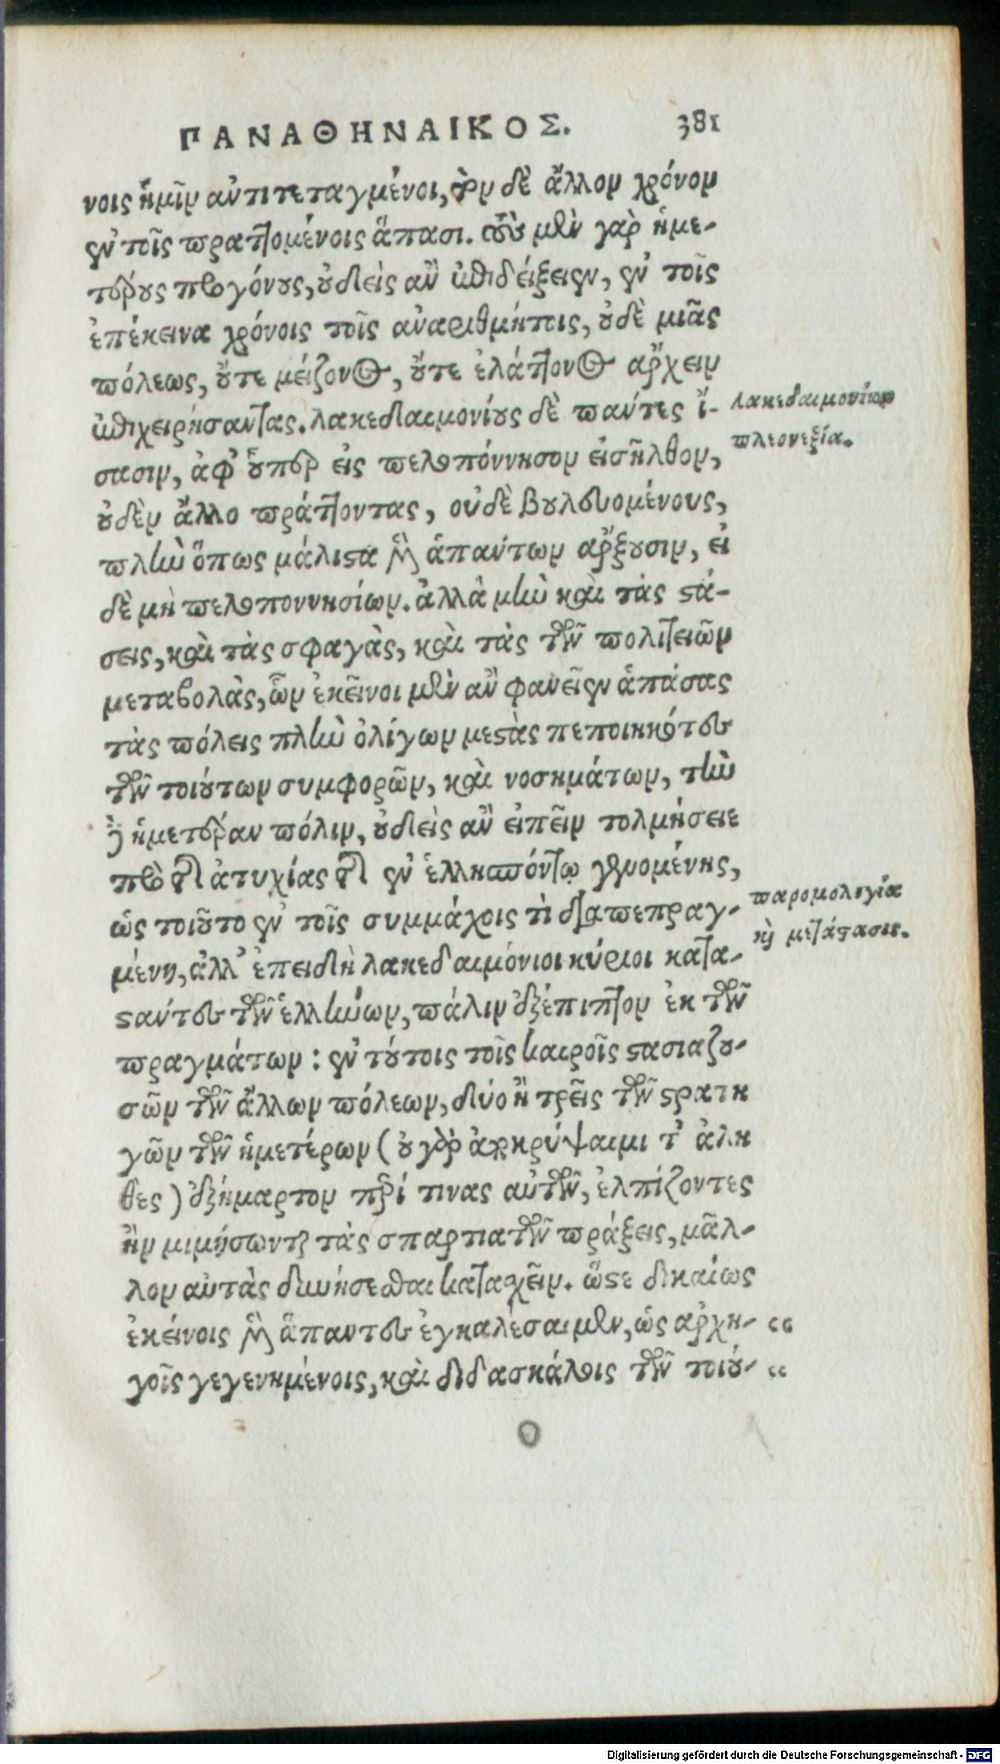 ΠΑΝΑΘΗΝΑΙΚΟΣ. 381
νοις ἡμῖν ἀντιτεταγμένοι, τὸν δὲ ἄλλον χρόνον
ἐν τοῖς πραττομένοις ἅπασι. τοὺς μὲν γὰρ ἡμε-
τέρους προγόνους, οὐδεὶς ἂν ἐπιδείξειεν, ἐν τοῖς
ἐπέκεινα χρόνοις τοῖς ἀναριθμήτοις, οὐδὲ μιᾶς
πόλεως, οὔτε μείζονος, οὔτε ἐλάττονος ἄρχειν
ἐπιχειρήσαντας. λακεδαιμονίους δὲ πάντες ἴ-
λακεδαιμονίων
πλεονεξία.
σασιν, ἀφ' οὗπερ εἰς πελοπόννησον εἰσῆλθον,
οὐδὲν ἄλλο πράττοντας, οὐδὲ βουλευομένους,
πλὴν ὅπως μάλιστα μὲν ἁπάντων ἄρξουσιν, εἰ
δὲ μὴ πελοποννησίων. ἀλλὰ μὴν καὶ τὰς στά-
σεις, καὶ τὰς σφαγὰς, καὶ τὰς τῶν πολιτειῶν
μεταβολὰς, ὧν ἐκεῖνοι μὲν ἂν φανεῖεν ἁπάσας
τὰς πόλεις πλὴν ὀλίγων μεστὰς πεποιηκότες
τῶν τοιούτων συμφορῶν, καὶ νοσημάτων, τὴν
δ' ἡμετέραν πόλιν, οὐδεὶς ἂν εἰπεῖν τολμήσειε
πρὸ τῆς ἀτυχίας τῆς ἐν ἑλλησπόντῳ γενομένης,
ὡς τοιοῦτο ἐν τοῖς συμμάχοις τὶ διαπεπραγ-
παρομολογία
καὶ μετάστασις.
μένη, ἀλλ' ἐπειδὴ λακεδαιμόνιοι κύριοι κατα-
στάντες τῶν ἑλλήνων, πάλιν ἐξέπιπτον ἐκ τῶν
πραγμάτων: ἐν τούτοις τοῖς καιροῖς στασιαζου-
σῶν τῶν ἄλλων πόλεων, δύο ἢ τρεῖς τῶν στρατη
γῶν τῶν ἡμετέρων (οὐ γὰρ ἀποκρύψαιμι τ' ἀλη
θὲς) ἐξήμαρτον περί τινας αὐτῶν, ἐλπίζοντες
ἢν μιμήσωνται τὰς σπαρτιατῶν πράξεις, μᾶλ-
λον αὐτὰς δυνήσεσθαι κατασχεῖν. ὥστε δικαίως
ἐκείνοις μὲν ἅπαντες ἐγκαλέσαιμεν, ὡς ἀρχη- "
γοῖς γεγενημένοις, καὶ διδασκάλοις τῶν τοιού- "
Digitalisierung gefördert durch die Deutsche Forschungsgemeinschaft - DFG